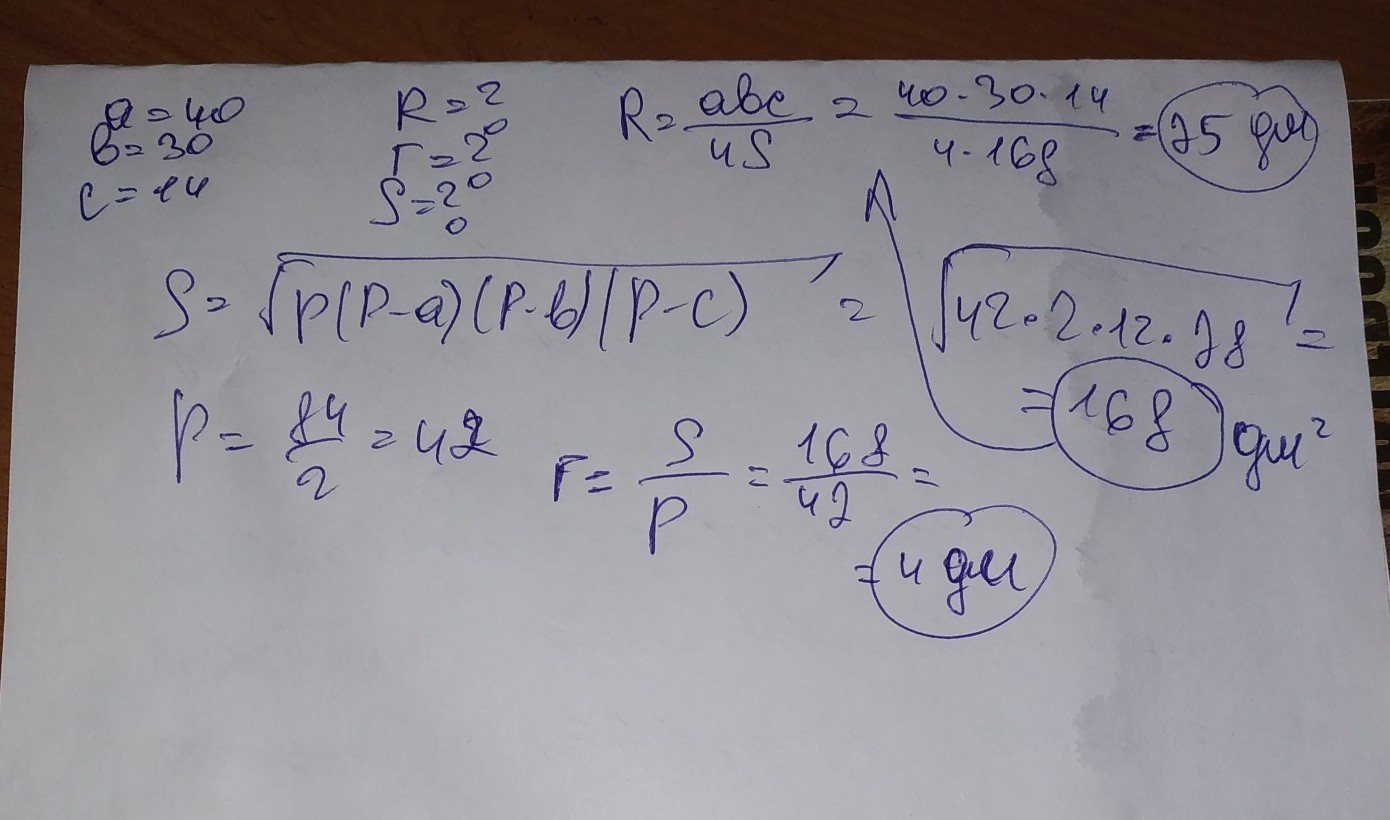 a = 40
b = 30
c = 14
R = ?
r = ?
S = ?
R = abc/4S = 40·30·14/4·168 = 25 дм
S = √p(p-a)(p-b)(p-c) = √42·2·12·28 =
= 168 дм²
p = 84/2 = 42
r = S/p = 168/42 =
= 4 дм